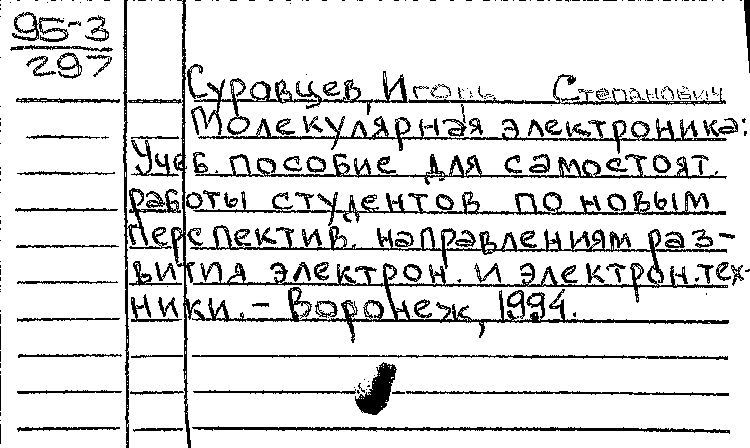 95-3
297
Суровцев, Игорь Степанович
Молекулярная электроника:
Учеб. пособие для самостоят.
работы студентов по новым
перспектив. направлениям раз-
вития электрон. и электрон. тех-
ники. - Воронеж, 1994.